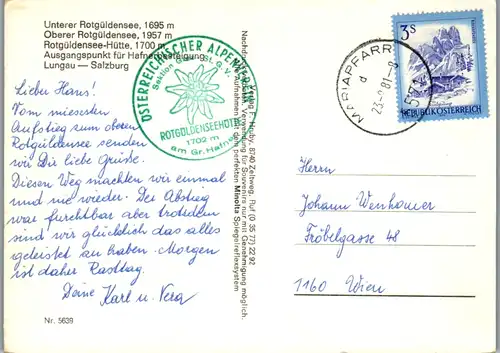 Unterer Rotgüldensee, 1695 m
Oberer Rotgüldensee, 1957 m
Rotgüldensee-Hütte, 1700 m
Ausgangspunkt für Hafnerbesteigung
Lungau — Salzburg
Lieber Hans!
Vom miesesten
Aufstieg zum oberen
Rotgüldensee senden
wir Dir liebe Grüsse.
Diesen Weg machten wir einmal
und nie wieder. Der Abstieg
war furchtbar aber trotzdem
sind wir glücklich das alles
geleistet zu haben. Morgen
ist daher Rasttag.
Deine Karl u. Vera
Nr. 5639
ÖSTERREICHISCHER ALPEN
Sektion
ROTGÜLDENSEEHÜTTE
1702 m
am Gr. Hafner
8740 Zeltweg, Ruf (0 35 77) 22 92
Verwendung für Souvenirs nur mit Genehmigung möglich.
Aufnahmen mit dem perfekten Minolta Spiegelreflexsystem
MARIAPFARR
d
23.-9.81-8
5571
3S
REPUBLIK ÖSTERREICH
Herrn
Johann Wenhoman
Fröbelgasse 48
1160 Wien